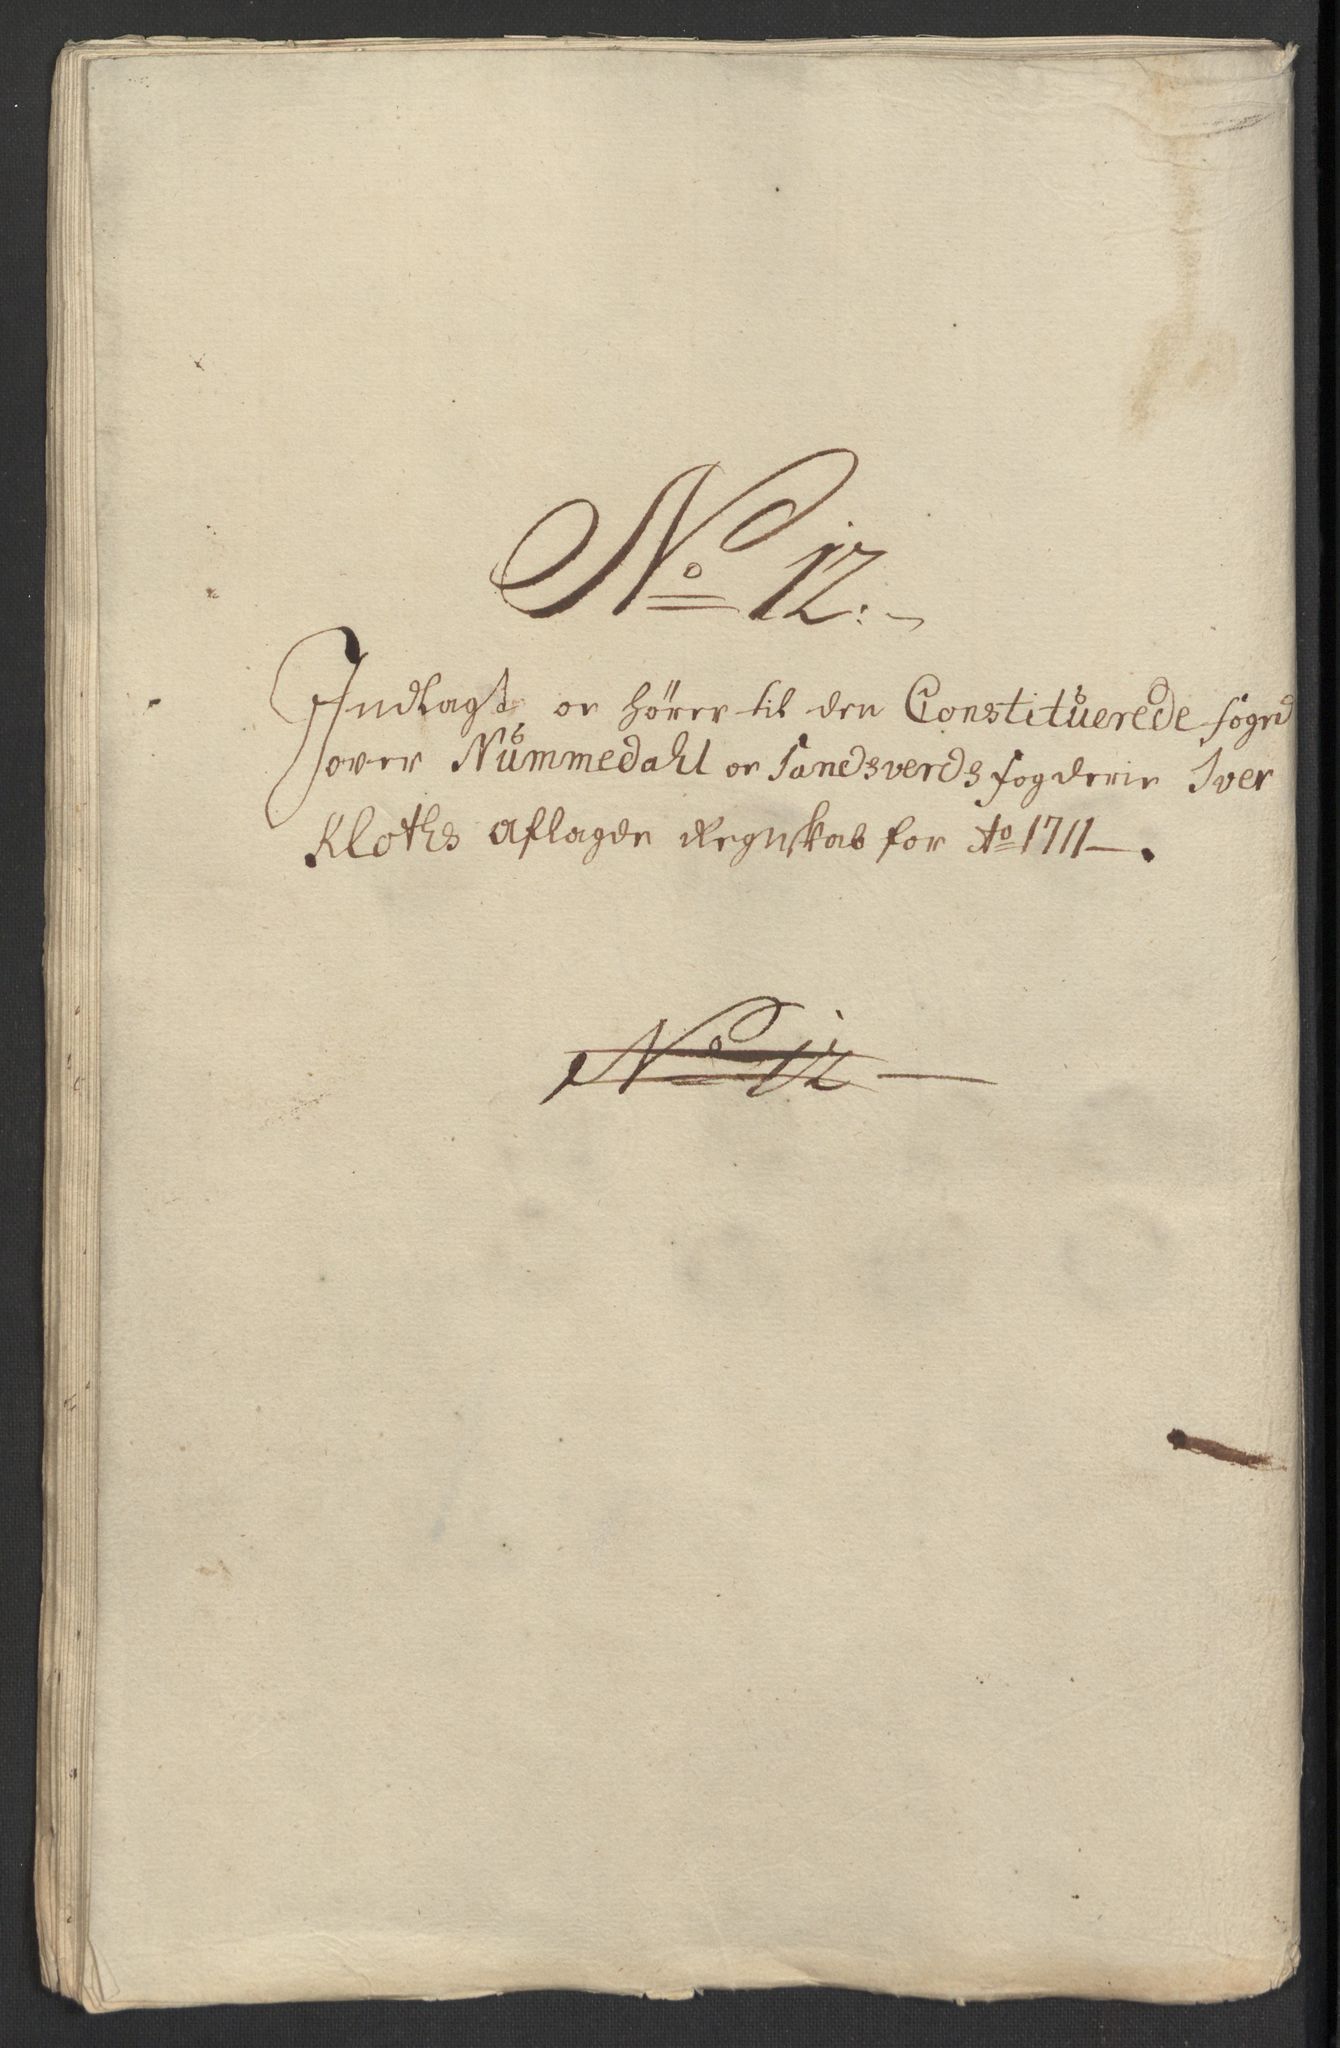 No 12:
Indlagt, oc hörer til den Constituerede foged
over Nummedahl oc Sandsverds fogderie Iver
Kloths aflagde Regnskab for Ao 1711.
No 12